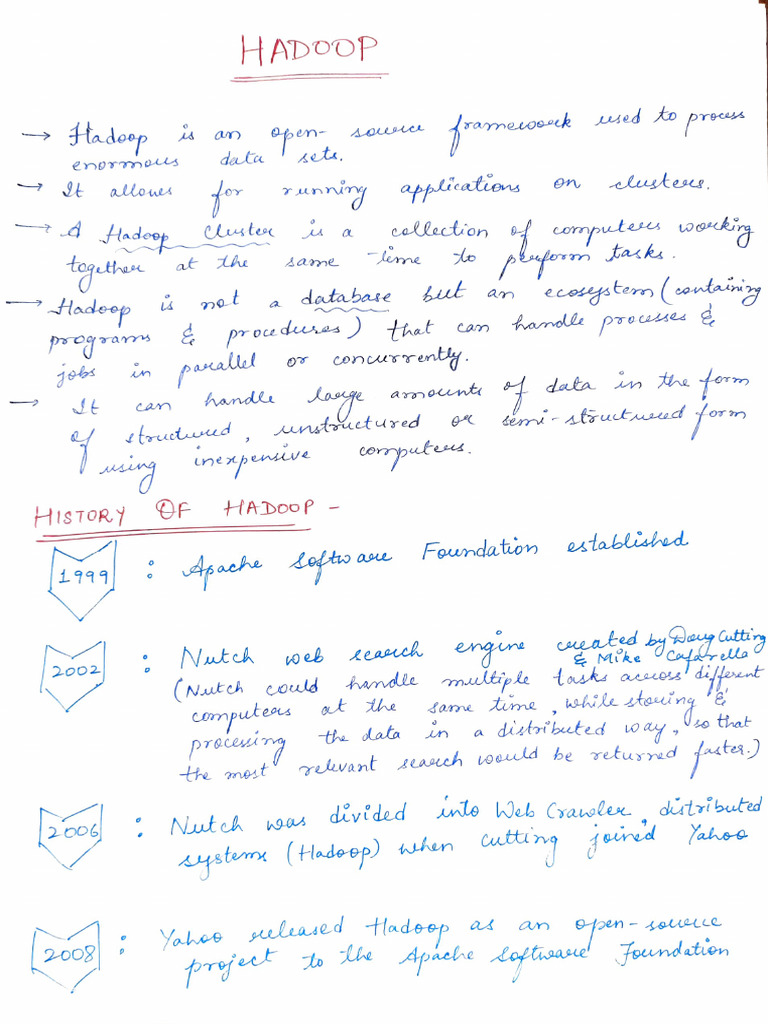 HADOOP
→ Hadoop is an open-source framework used to process
enormous data sets.
→ It allows for running applications on clusters.
→ A Hadoop Cluster is a collection of computers working
together at the same time to perform tasks.
→ Hadoop is not a database but an ecosystem (containing
programs & procedures) that can handle processes &
jobs in parallel or concurrently.
→ It can handle large amounts of data in the form
of structured, unstructured or semi-structured form
using inexpensive computers.
HISTORY OF HADOOP -
1999 : Apache Software Foundation established
2002 : Nutch web search engine created by Doug Cutting
& Mike Cafarella
(Nutch could handle multiple tasks across different
computers at the same time, while storing &
processing the data in a distributed way, so that
the most relevant search would be returned faster.)
2006 : Nutch was divided into Web Crawler, distributed
systems (Hadoop) when Cutting joined Yahoo
2008 : Yahoo released Hadoop as an open-source
project to the Apache Software Foundation